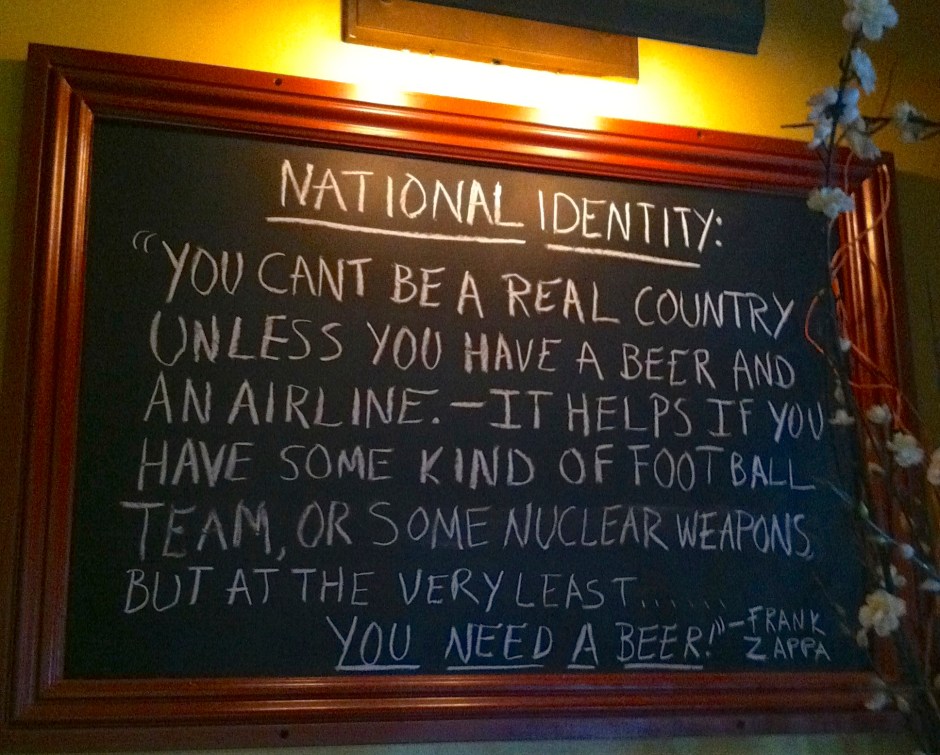 NATIONAL IDENTITY:
“YOU CANT BE A REAL COUNTRY
UNLESS YOU HAVE A BEER AND
AN AIRLINE. – IT HELPS IF YOU
HAVE SOME KIND OF FOOTBALL
TEAM, OR SOME NUCLEAR WEAPONS,
BUT AT THE VERY LEAST.......
YOU NEED A BEER!” – FRANK
ZAPPA